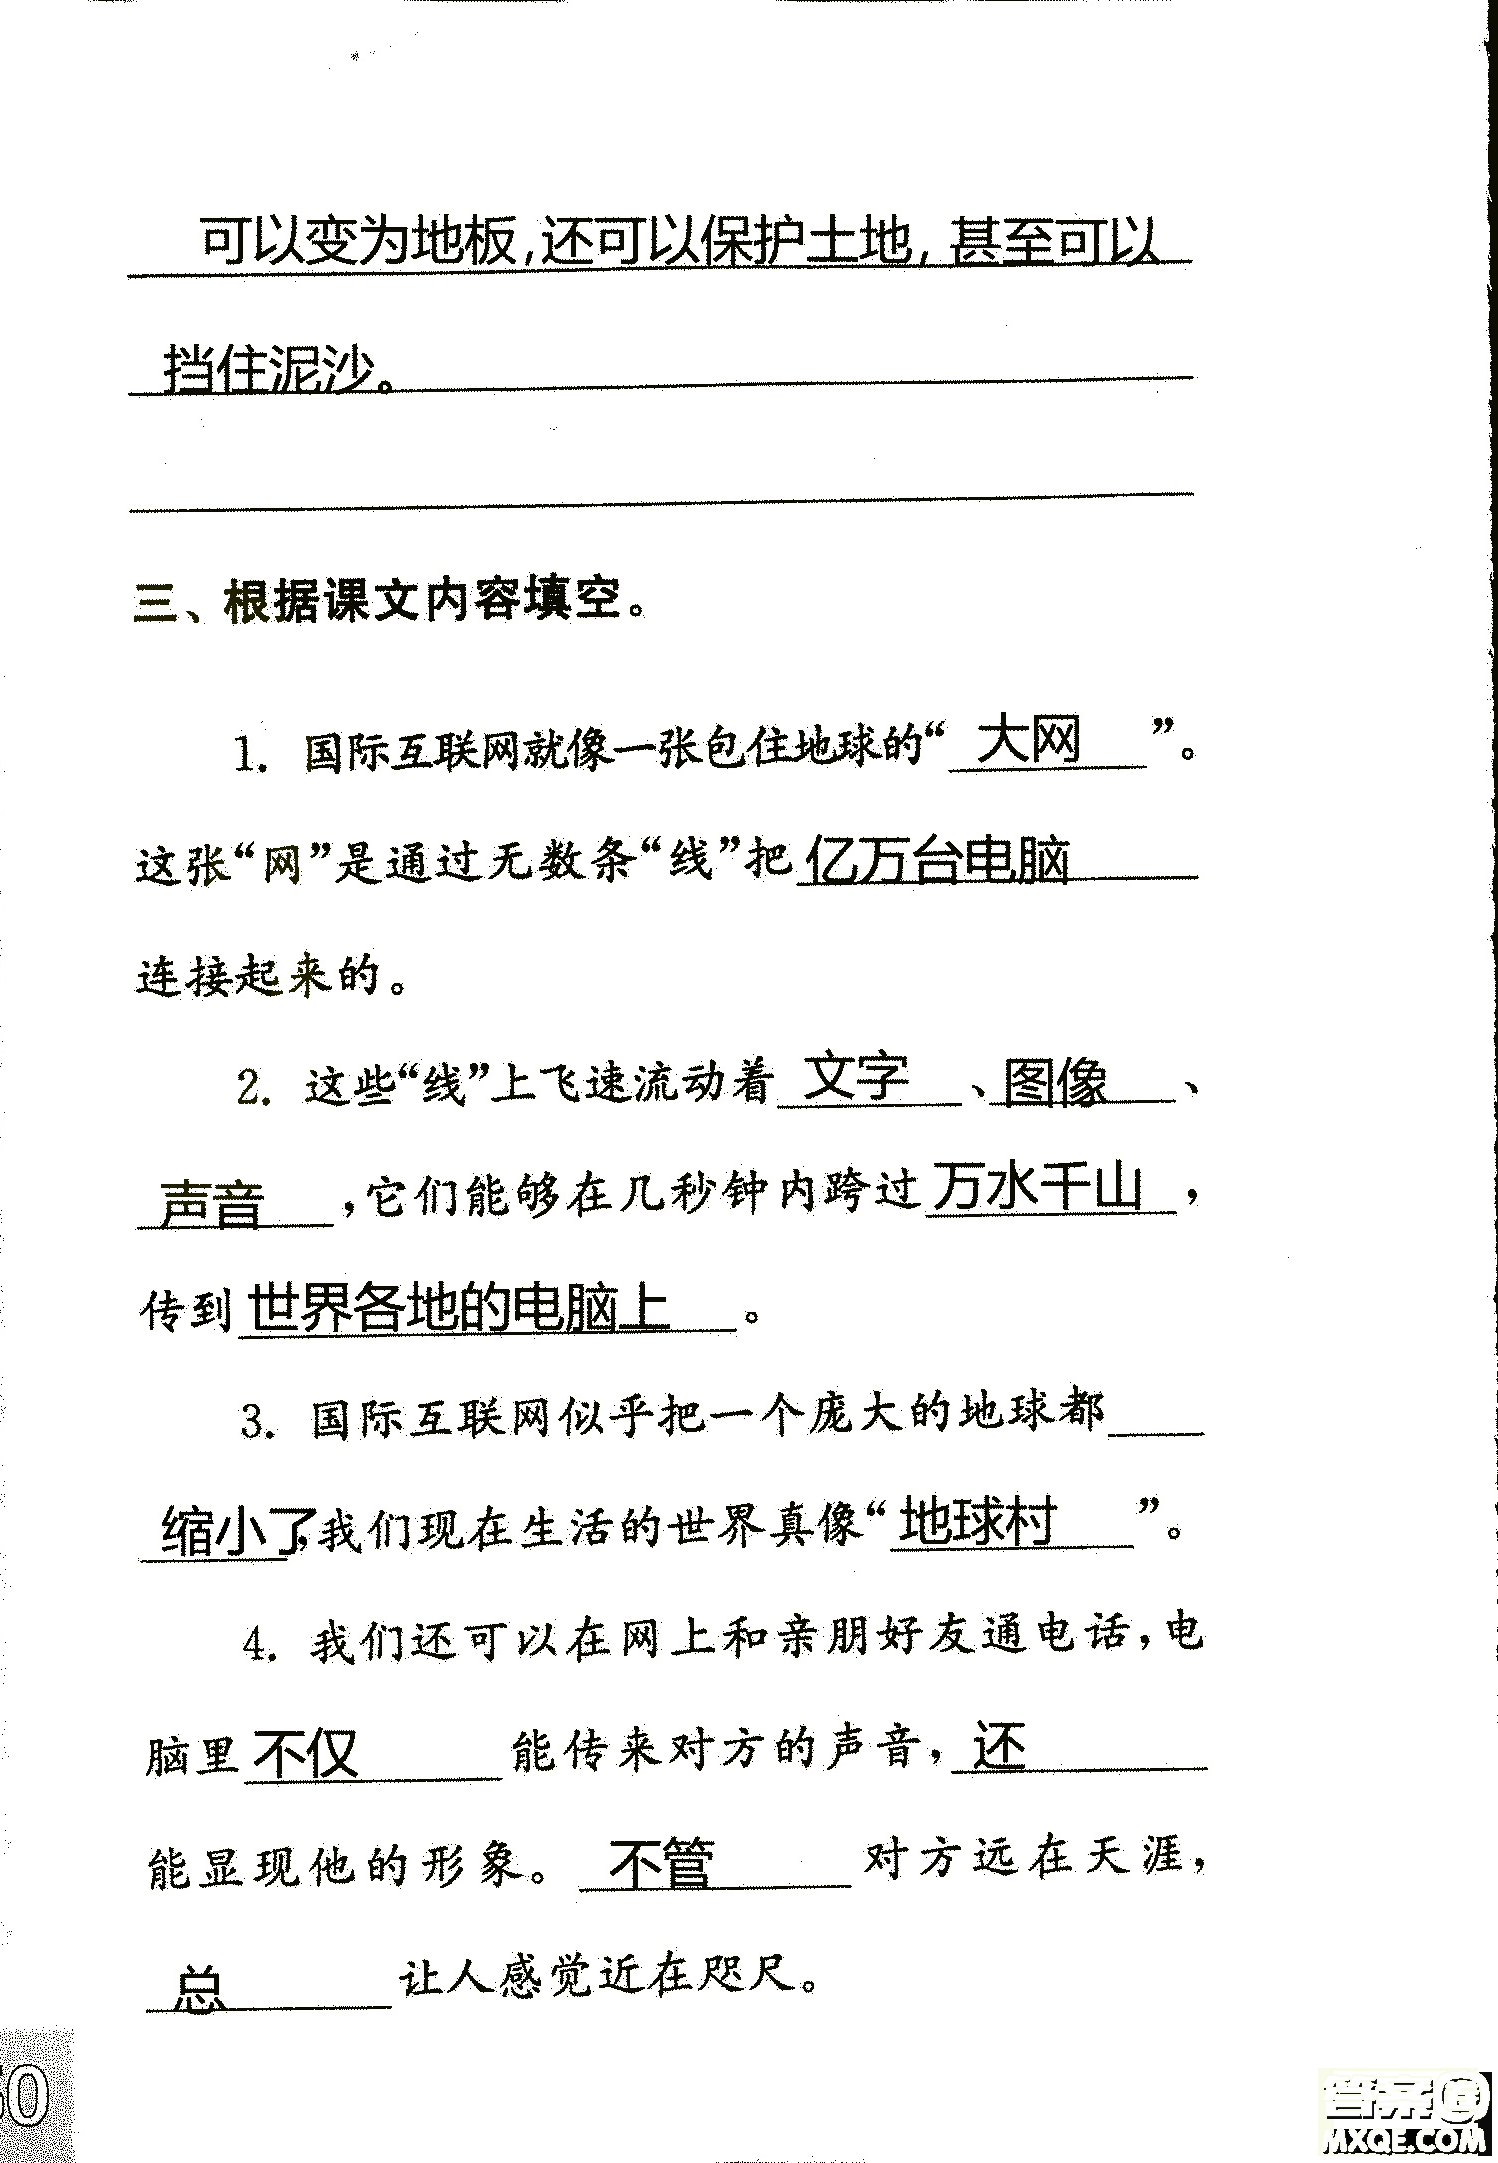 可以变为地板,还可以保护土地,甚至可以
挡住泥沙。
三、根据课文内容填空。
1. 国际互联网就像一张包住地球的“大网”。
这张“网”是通过无数条“线”把亿万台电脑
连接起来的。
2. 这些“线”上飞速流动着文字、图像、
声音,它们能够在几秒钟内跨过万水千山,
传到世界各地的电脑上。
3. 国际互联网似乎把一个庞大的地球都
缩小了,我们现在生活的世界真像“地球村”。
4. 我们还可以在网上和亲朋好友通电话,电
脑里不仅能传来对方的声音,还
能显现他的形象。不管对方远在天涯,
总让人感觉近在咫尺。
答案圈
MXQE.COM